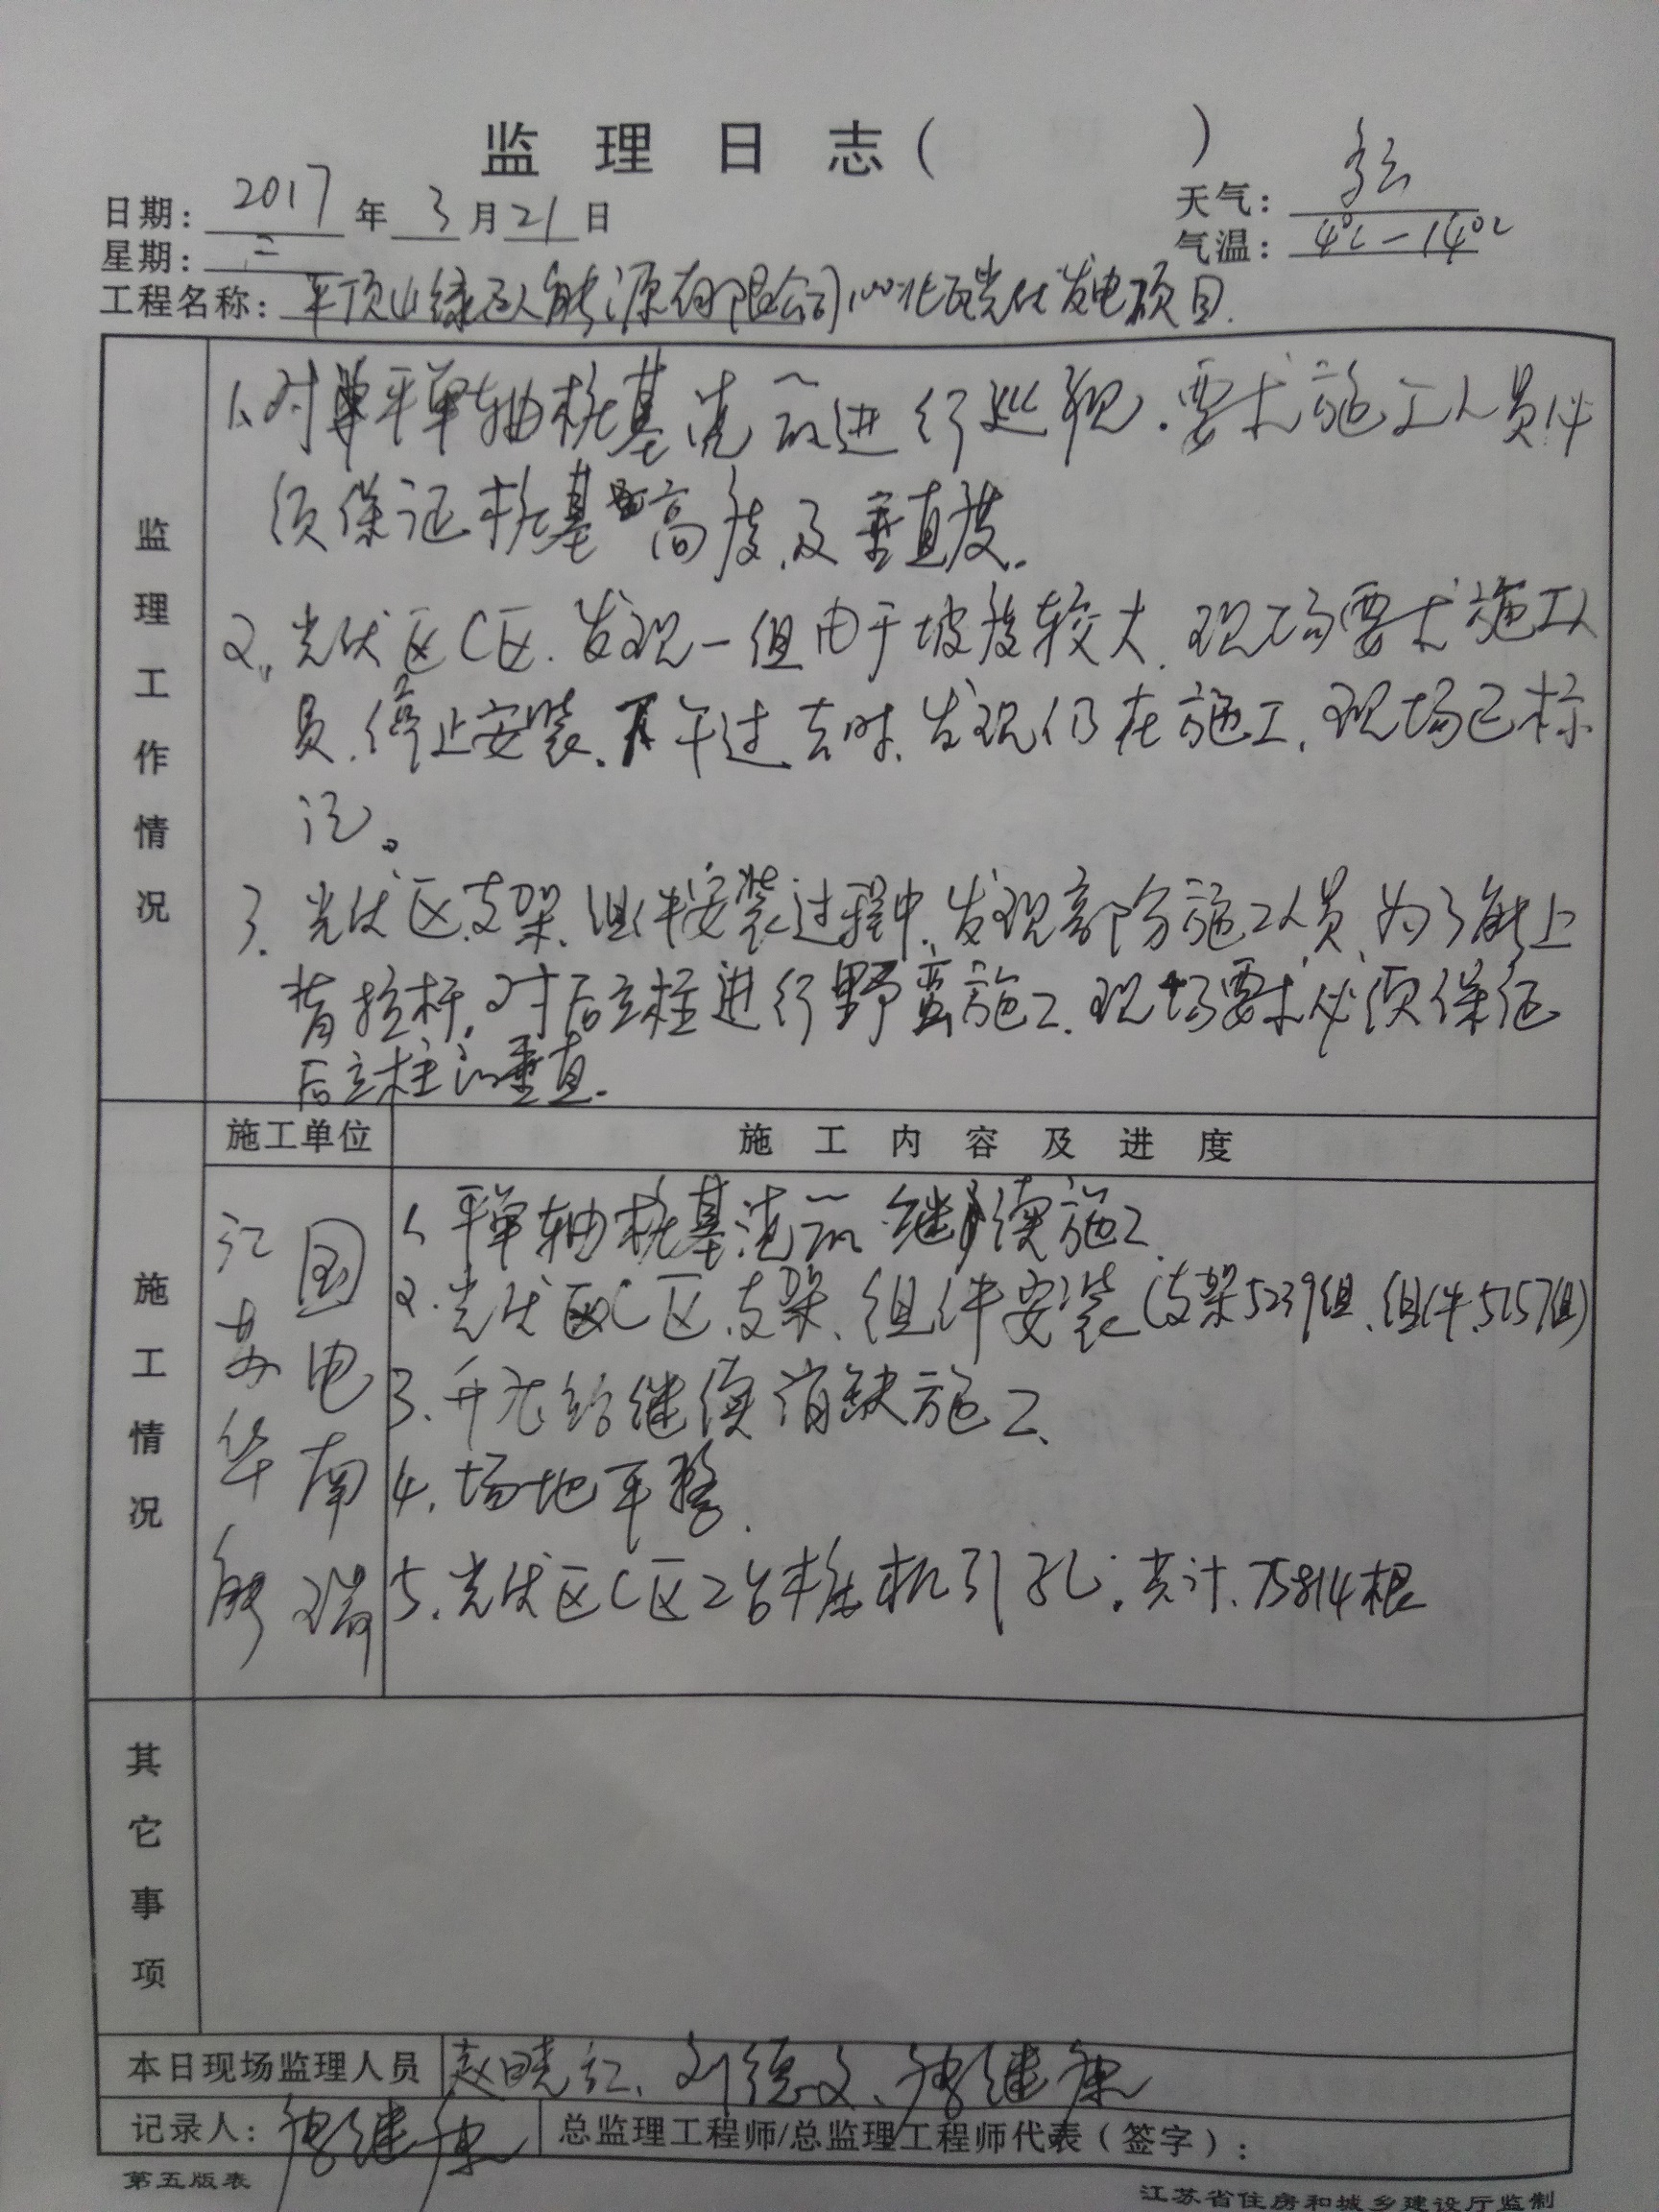 监理日志（ ）
日期：2017年3月21日 天气：多云
星期：二 气温：4℃—14℃
工程名称：平顶山绿 能源有限公司 光伏发电项目.
监理工作情况
1、对平单轴桩基浇筑进行巡视.要求施工人员必
须保证桩基高度及垂直度.
2、光伏区C区.发现一组由于坡度较大.现场要求施工人
员.停止安装.下午过去时.发现仍在施工.现场已标
记。
3.光伏区.支架.组件安装过程中.发现部分施工人员.为了能上
背拉杆.对后立柱进行野蛮施工.现场要求必须保证
后立柱的垂直.
施工情况
施工单位 施工内容及进度
江苏华能
国电南瑞
1、平单轴桩基浇筑继续施工.
2.光伏区C区.支架、组件安装(支架5239组、组件5157组)
3、升压站继续消缺施工、
4、场地平整.
5、光伏区C区2台桩机引孔.共计.75814根
其它事项
本日现场监理人员 赵晓红、刘德文、 继康
记录人： 继康 总监理工程师/总监理工程师代表（签字）：
第五版表 江苏省住房和城乡建设厅监制